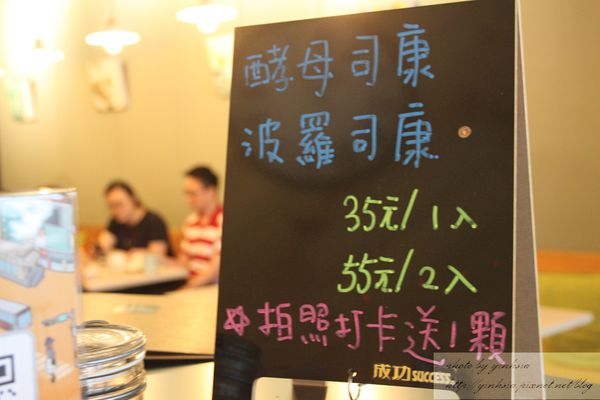 酵母司康
波羅司康
35元/1入
55元/2入
☆拍照打卡送1顆
成功success
photo by yinhsia
http://yinhsia.pixnet.net/blog